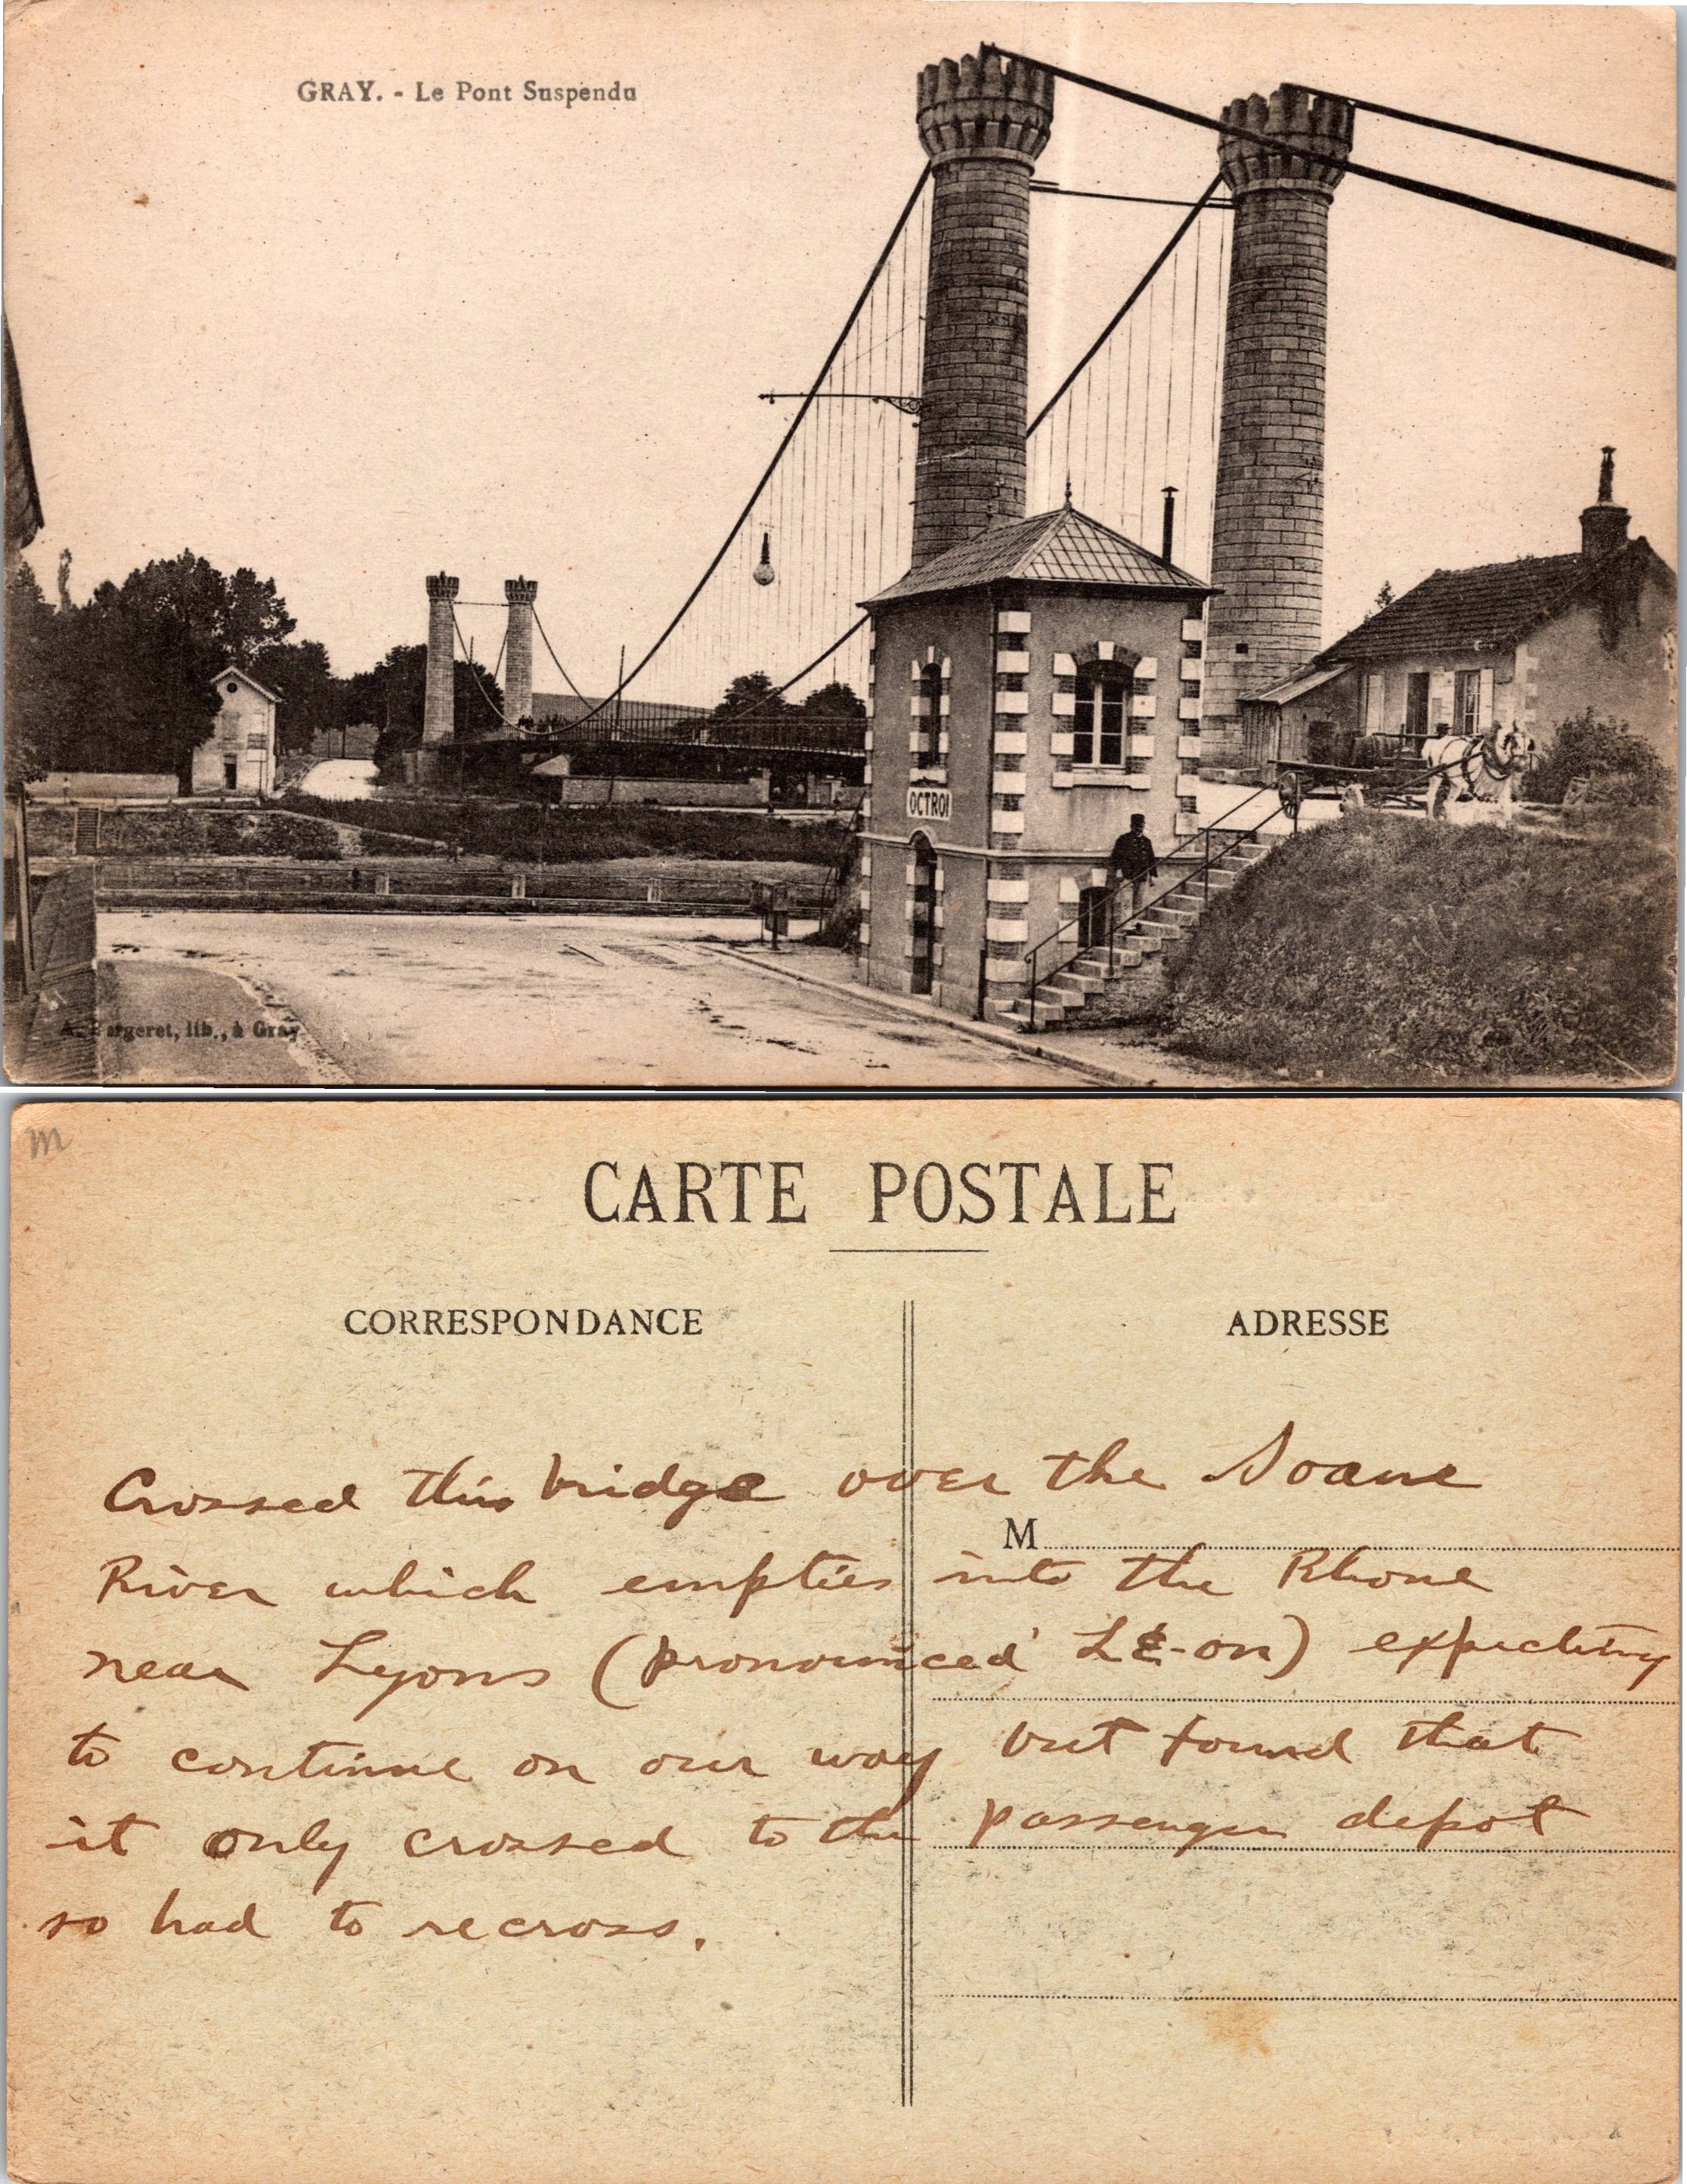 GRAY. - Le Pont Suspendu
OCTROI
lib., à Gray
m
CARTE POSTALE
CORRESPONDANCE
ADRESSE
Crossed this bridge over the Soane
M
River which empties into the Rhone
near Lyons (pronounced Le-on) expecting
to continue on our way but found that
it only crossed to the passenger depot
so had to recross.